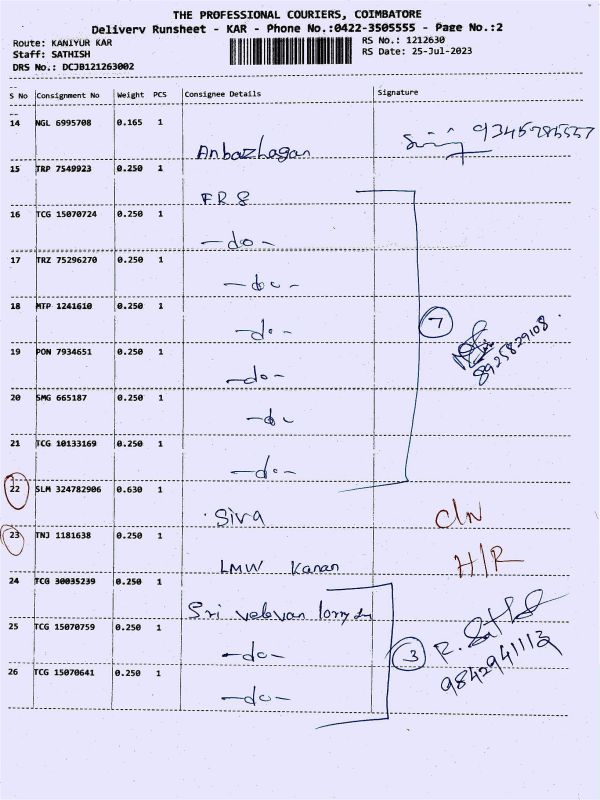 THE PROFESSIONAL COURIERS, COIMBATORE
Delivery Runsheet - KAR - Phone No.:0422-3505555 - Page No.:2
Route: KANIYUR KAR
RS No.: 1212630
Staff: SATHISH
RS Date: 25-Jul-2023
DRS No.: DCJB121263002
S No Consignment No Weight PCS Consignee Details Signature
14 NGL 6995708 0.165 1
Anbazhagan 9345785557
15 TRP 7549923 0.250 1
FR8
16 TCG 15070724 0.250 1
-do-
17 TRZ 75296270 0.250 1
-do-
18 MTP 1241610 0.250 1
-do- 7
19 PON 7934651 0.250 1
-do- 8925829108
20 SMG 665187 0.250 1
-do-
21 TCG 10133169 0.250 1
-do-
22 SLM 324782906 0.630 1
Siva C/N
23 TNJ 1181638 0.250 1
LMW Kanan H/R
24 TCG 30035239 0.250 1
Sri velavan lorry
25 TCG 15070759 0.250 1
-do- 3 9842941113
26 TCG 15070641 0.250 1
-do-